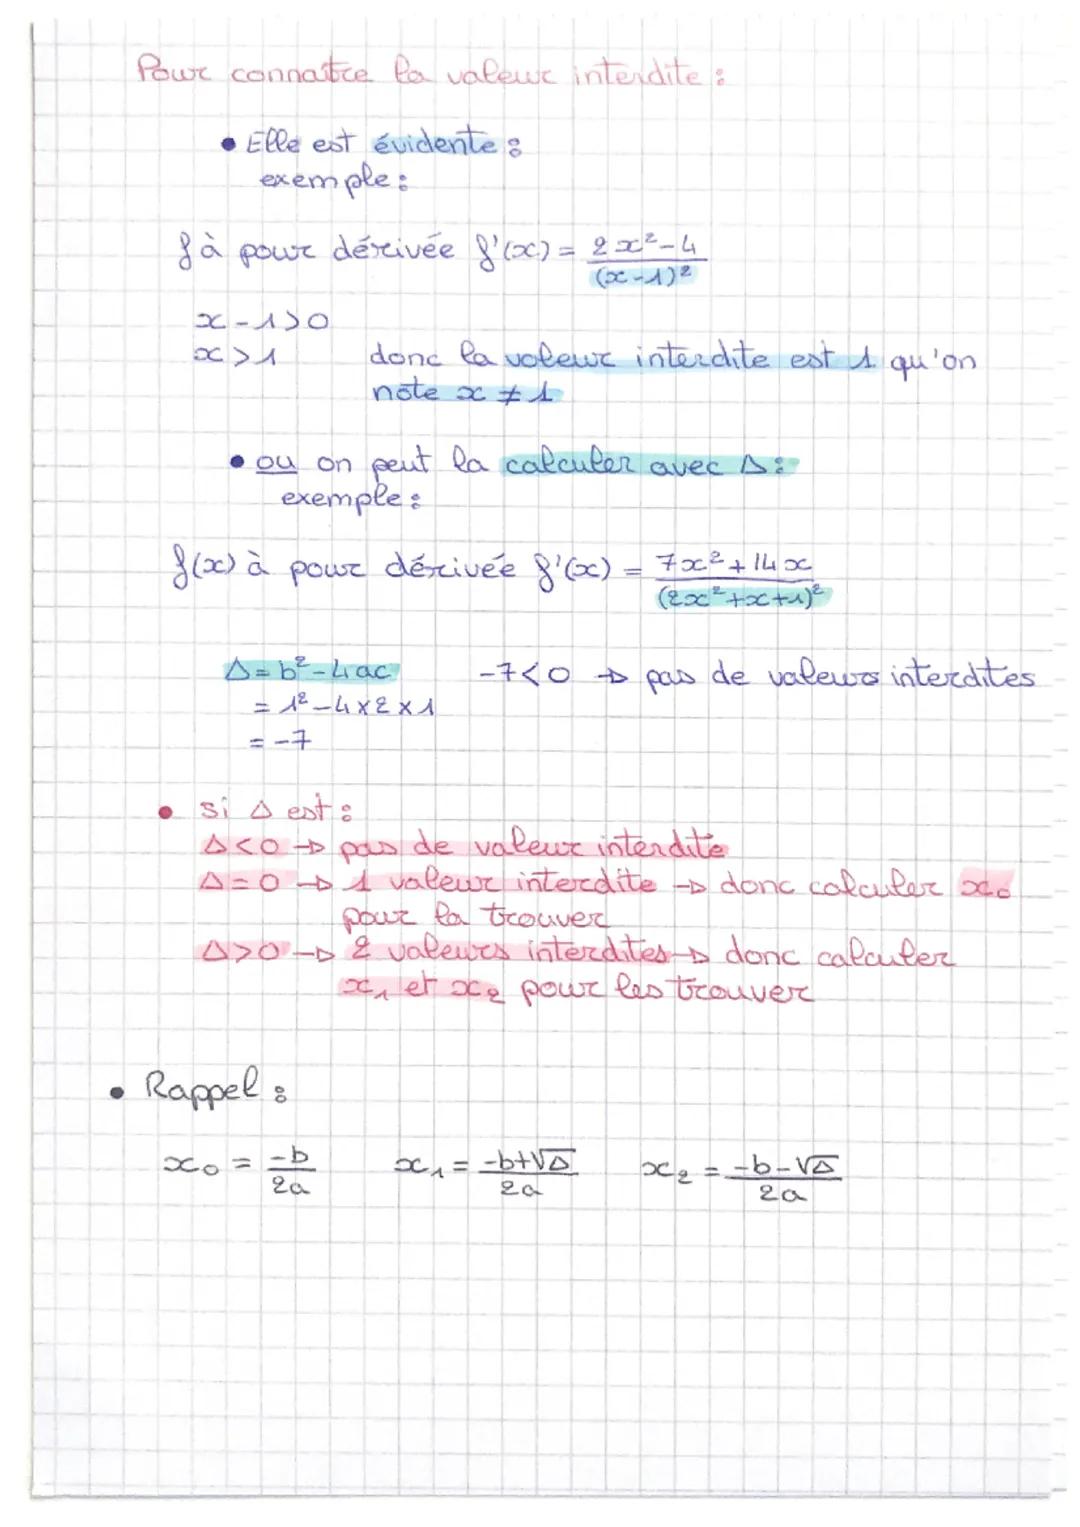 Pour connaître la valeur interdite :
• Elle est évidente :
exemple :
f à pour dérivée f'(x) = 2x²-4
(x-1)²
x-1>0
x>1 donc la valeur interdite est 1 qu'on
note x ≠ 1
• ou on peut la calculer avec Δ :
exemple :
f(x) à pour dérivée f'(x) = 7x²+14x
(2x²+x+1)²
Δ = b²-4ac -7<0 → pas de valeurs interdites
= 1²-4×2×1
= -7
• si Δ est :
Δ<0 → pas de valeur interdite
Δ=0 → 1 valeur interdite → donc calculer x₀
pour la trouver
Δ>0 → 2 valeurs interdites → donc calculer
x₁ et x₂ pour les trouver
• Rappel :
x₀ = -b x₁ = -b+√Δ x₂ = -b-√Δ
2a 2a 2a